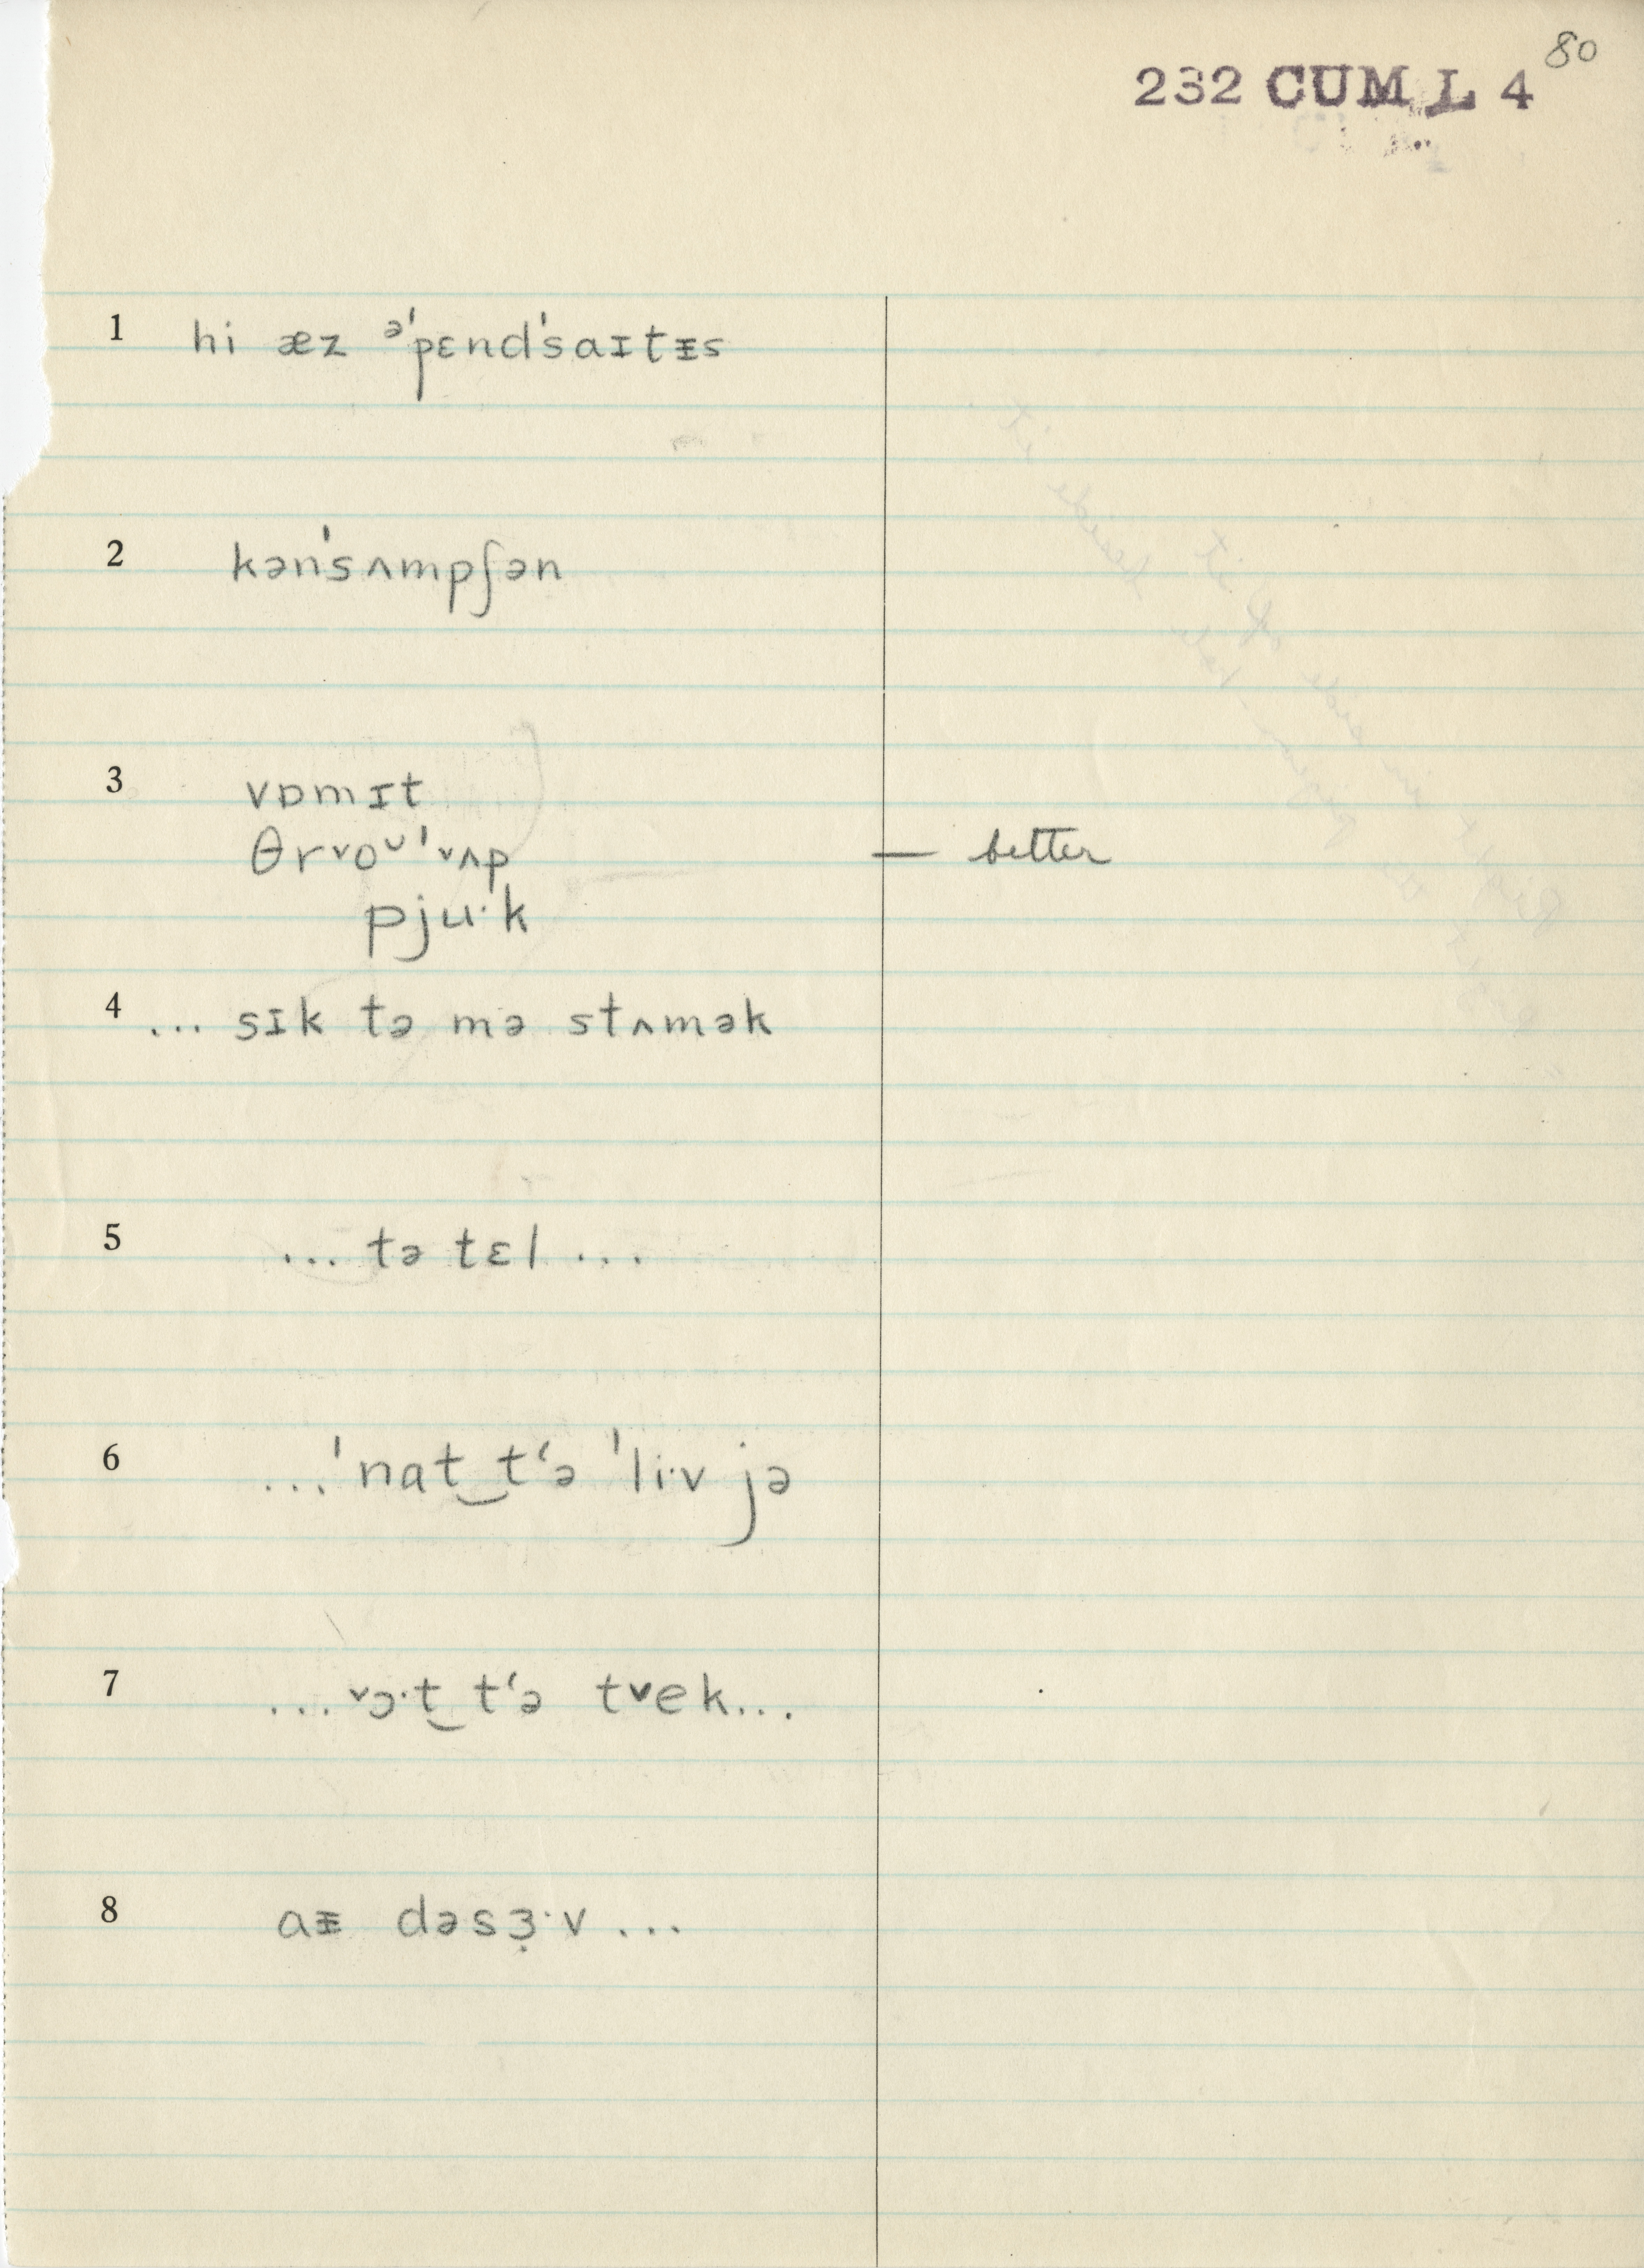 80
232 CUM L 4
1 hi æz ᵊˈpɛndˈsaɪtᵻs
2 kənˈsʌmpʃən
3 vɒmɪt
θr˅oᴗˈ˅ʌp — better
pju·k
4 ... sɪk tə mə stʌmək
5 ... tə tɛl ...
6 ...ˈnat‿tʻə ˈli·v jə
7 ...˅ɔ·t‿tʻə t˅ek...
8 aᵻ dəsɜ̣·v ...